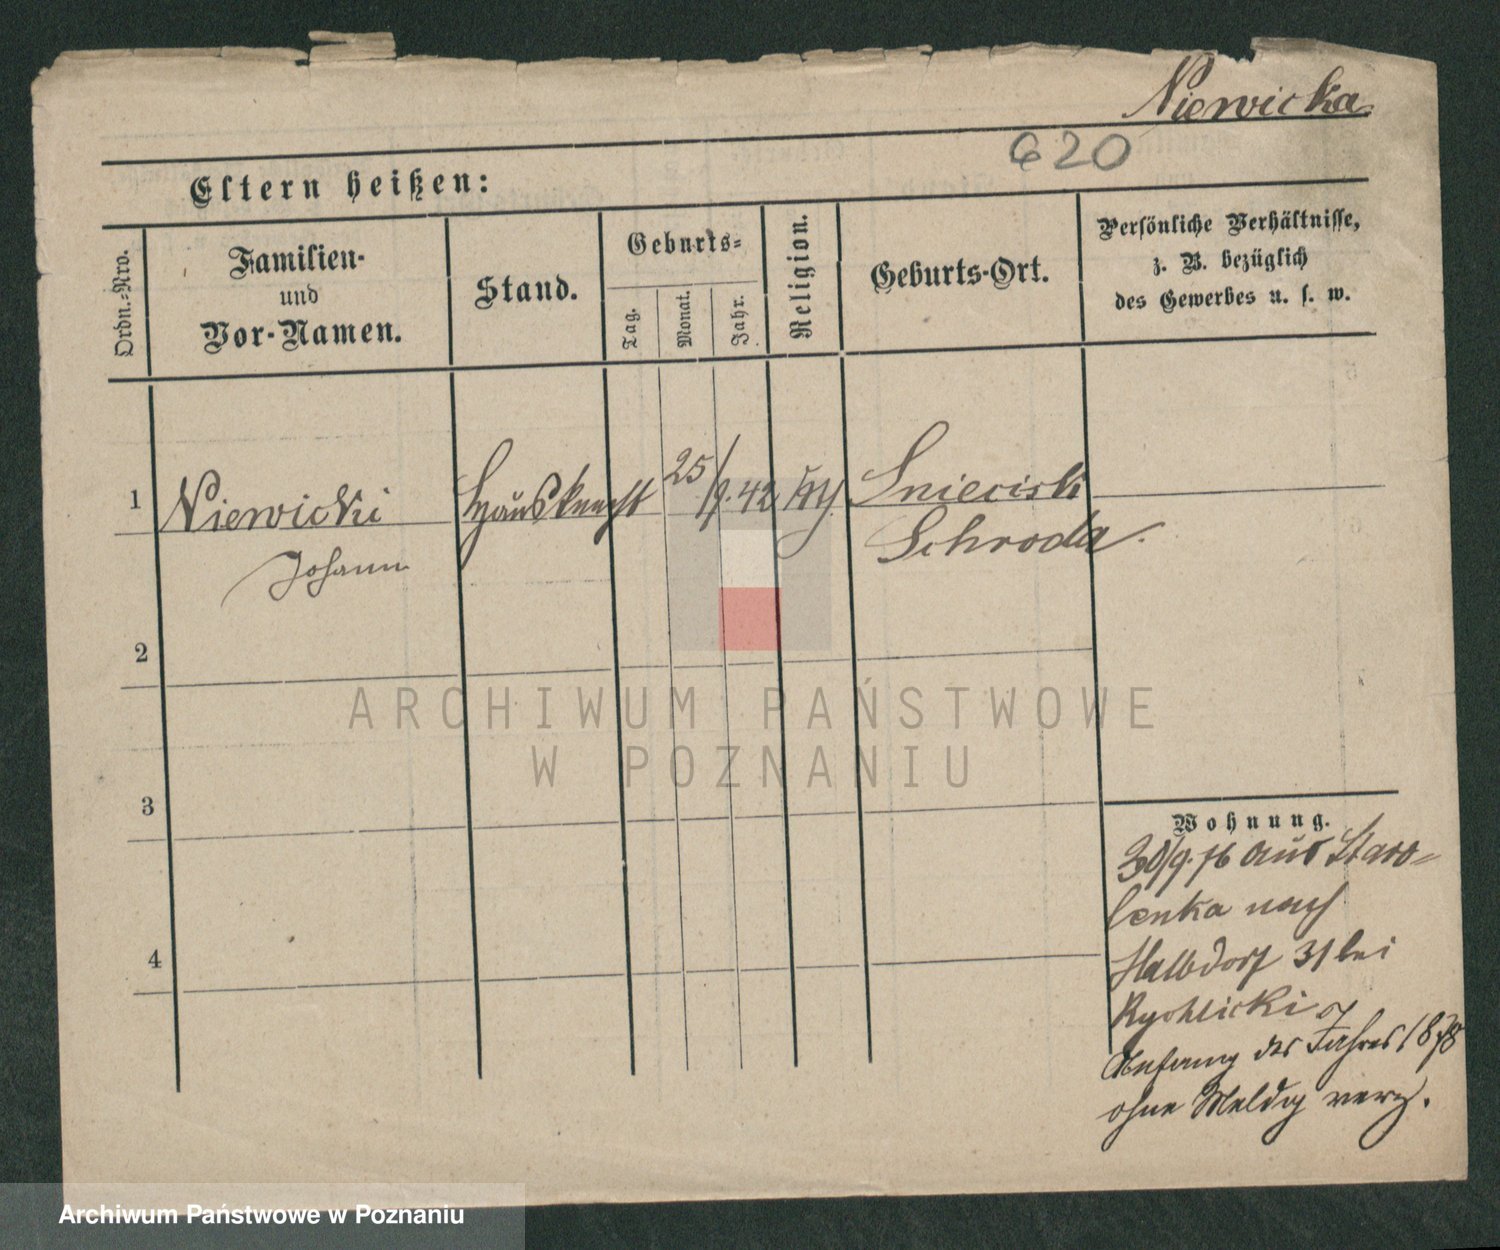 Niewicka
620
Eltern heißen:
Ordn.-Nro.
Familien-
und
Vor-Namen.
Stand.
Geburts-
Tag.
Monat.
Jahr.
Religion.
Geburts-Ort.
Persönliche Verhältnisse,
z. B. bezüglich
des Gewerbes u. s. w.
1
Niewicki
Johann
Hausknecht
25/9.42
Sniecisk
Schroda.
2
3
4
Wohnung.
30/9.76 aus Staro-
lenka nach
Halbdorf 31 bei
Rychlicki
Anfang des Jahres 1878
ohne Meldg verz.
ARCHIWUM PAŃSTWOWE
W POZNANIU
Archiwum Państwowe w Poznaniu